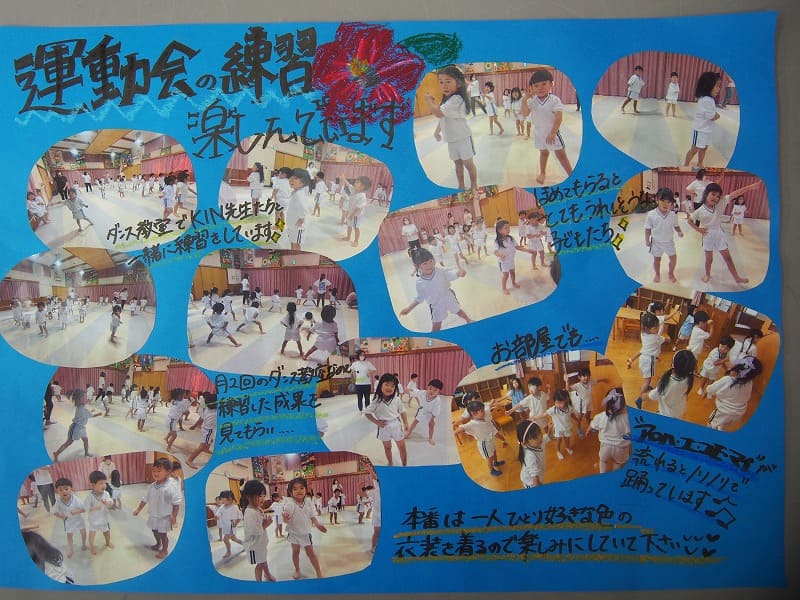 運動会の練習
楽しんでいます
ダンス教室でKIN先生たちと
一緒に練習をしています
ほめてもらうと
とてもうれしそうな
子どもたち
月2回のダンス教室で
練習した成果を
見てもらい....
お部屋でも....
"アロハ・エ・コモ・マイ"が
流れるとノリノリで
踊っています♪♫
本番は一人ひとり好きな色の
衣装を着るので楽しみにしていて下さい♡♡